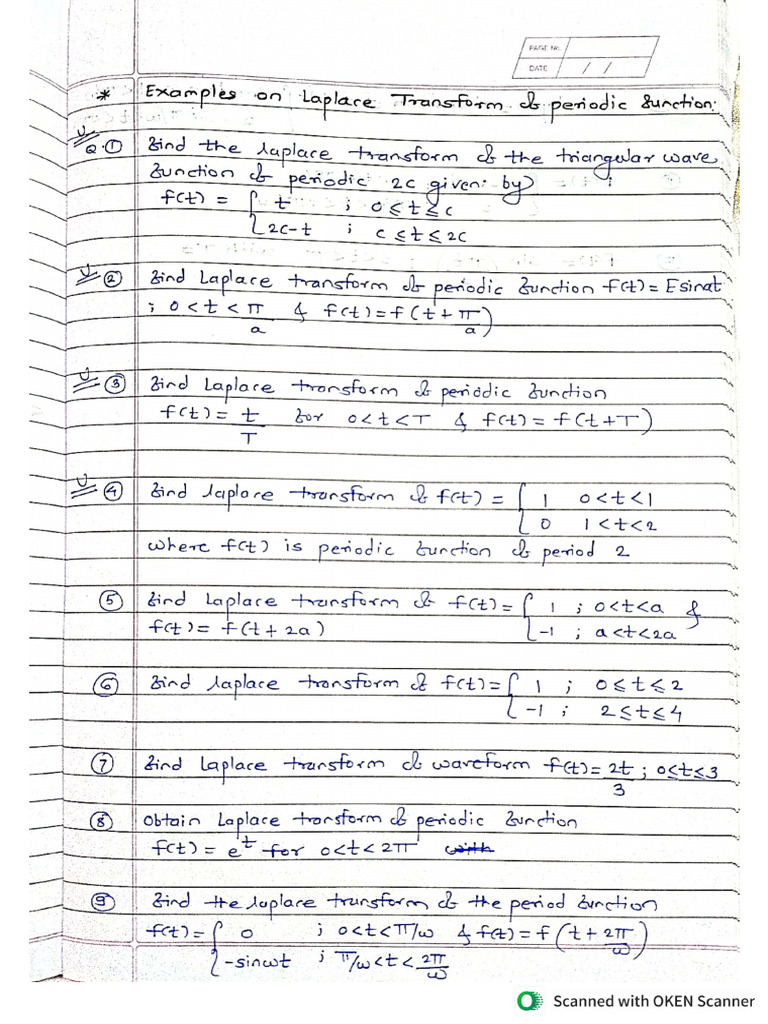 PAGE No.
DATE / /
* Examples on Laplace Transform of periodic function:
Q.① find the laplace transform of the triangular wave
function of periodic 2c given by
f(t) = { t ; 0≤t≤c
2c-t ; c≤t≤2c
② find Laplace transform of periodic function f(t)= Esinat
; 0<t<π/a & f(t)=f(t+π/a)
③ find Laplace transform of periodic function
f(t)= t/T for 0<t<T & f(t)=f(t+T)
④ find laplace transform of f(t) = { 1 0<t<1
0 1<t<2
where f(t) is periodic function of period 2
⑤ find Laplace transform of f(t)= { 1 ; 0<t<a &
f(t)= f(t+2a) -1 ; a<t<2a
⑥ find laplace transform of f(t)= { 1 ; 0≤t≤2
-1 ; 2≤t≤4
⑦ find Laplace transform of waveform f(t)= 2t/3 ; 0≤t≤3
⑧ obtain Laplace transform of periodic function
f(t)= e^t for 0<t<2π with
⑨ find the laplace transform of the period function
f(t)= { 0 ; 0<t<π/ω & f(t)=f(t+2π/ω)
-sinωt ; π/ω<t<2π/ω
Scanned with OKEN Scanner